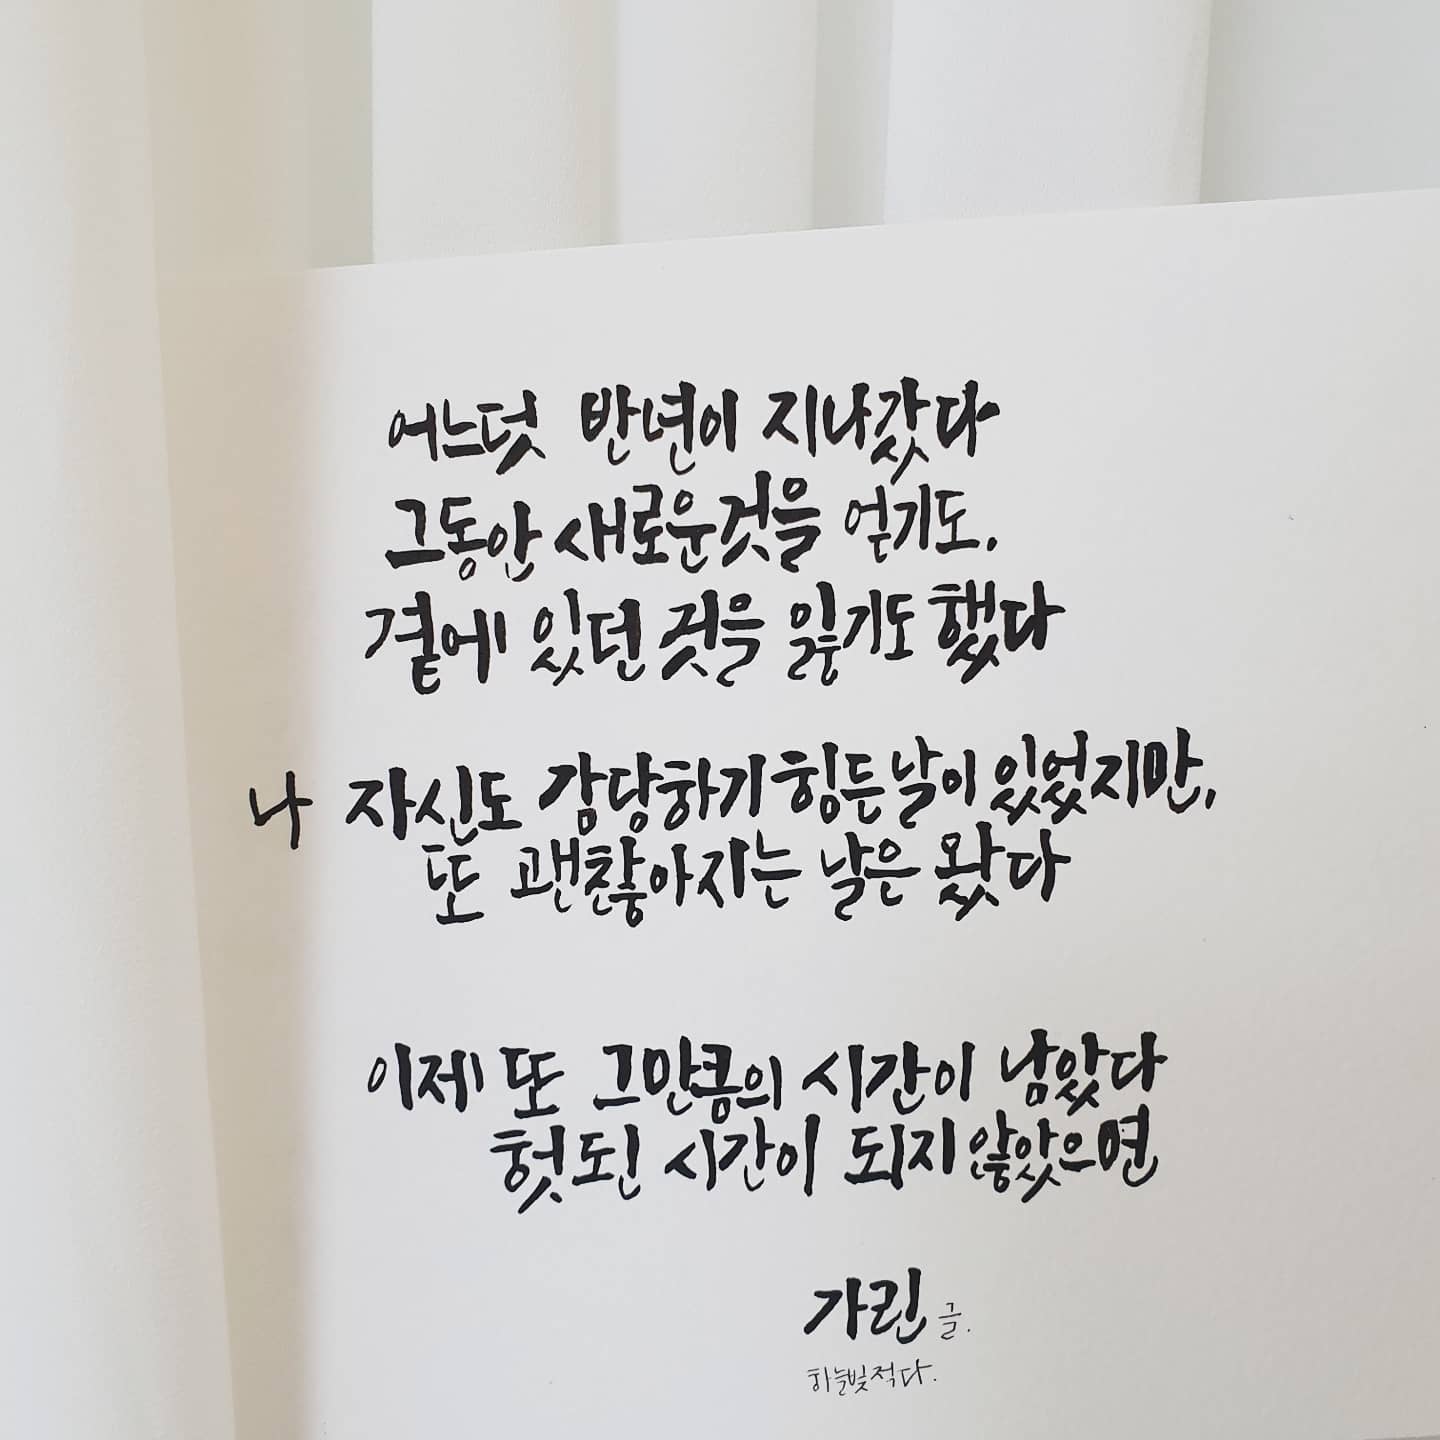 어느덧 반년이 지나갔다
그동안 새로운것을 얻기도,
곁에 있던 것을 잃기도 했다
나 자신도 감당하기 힘든 날이 있었지만,
또 괜찮아지는 날은 왔다
이제 또 그만큼의 시간이 남았다
헛된 시간이 되지 않았으면
가린 글.
하늘빛적다.